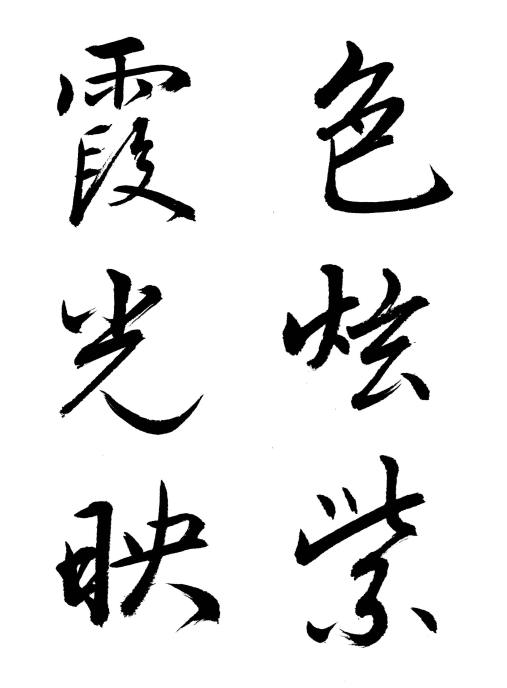 色炫紫
霞光映